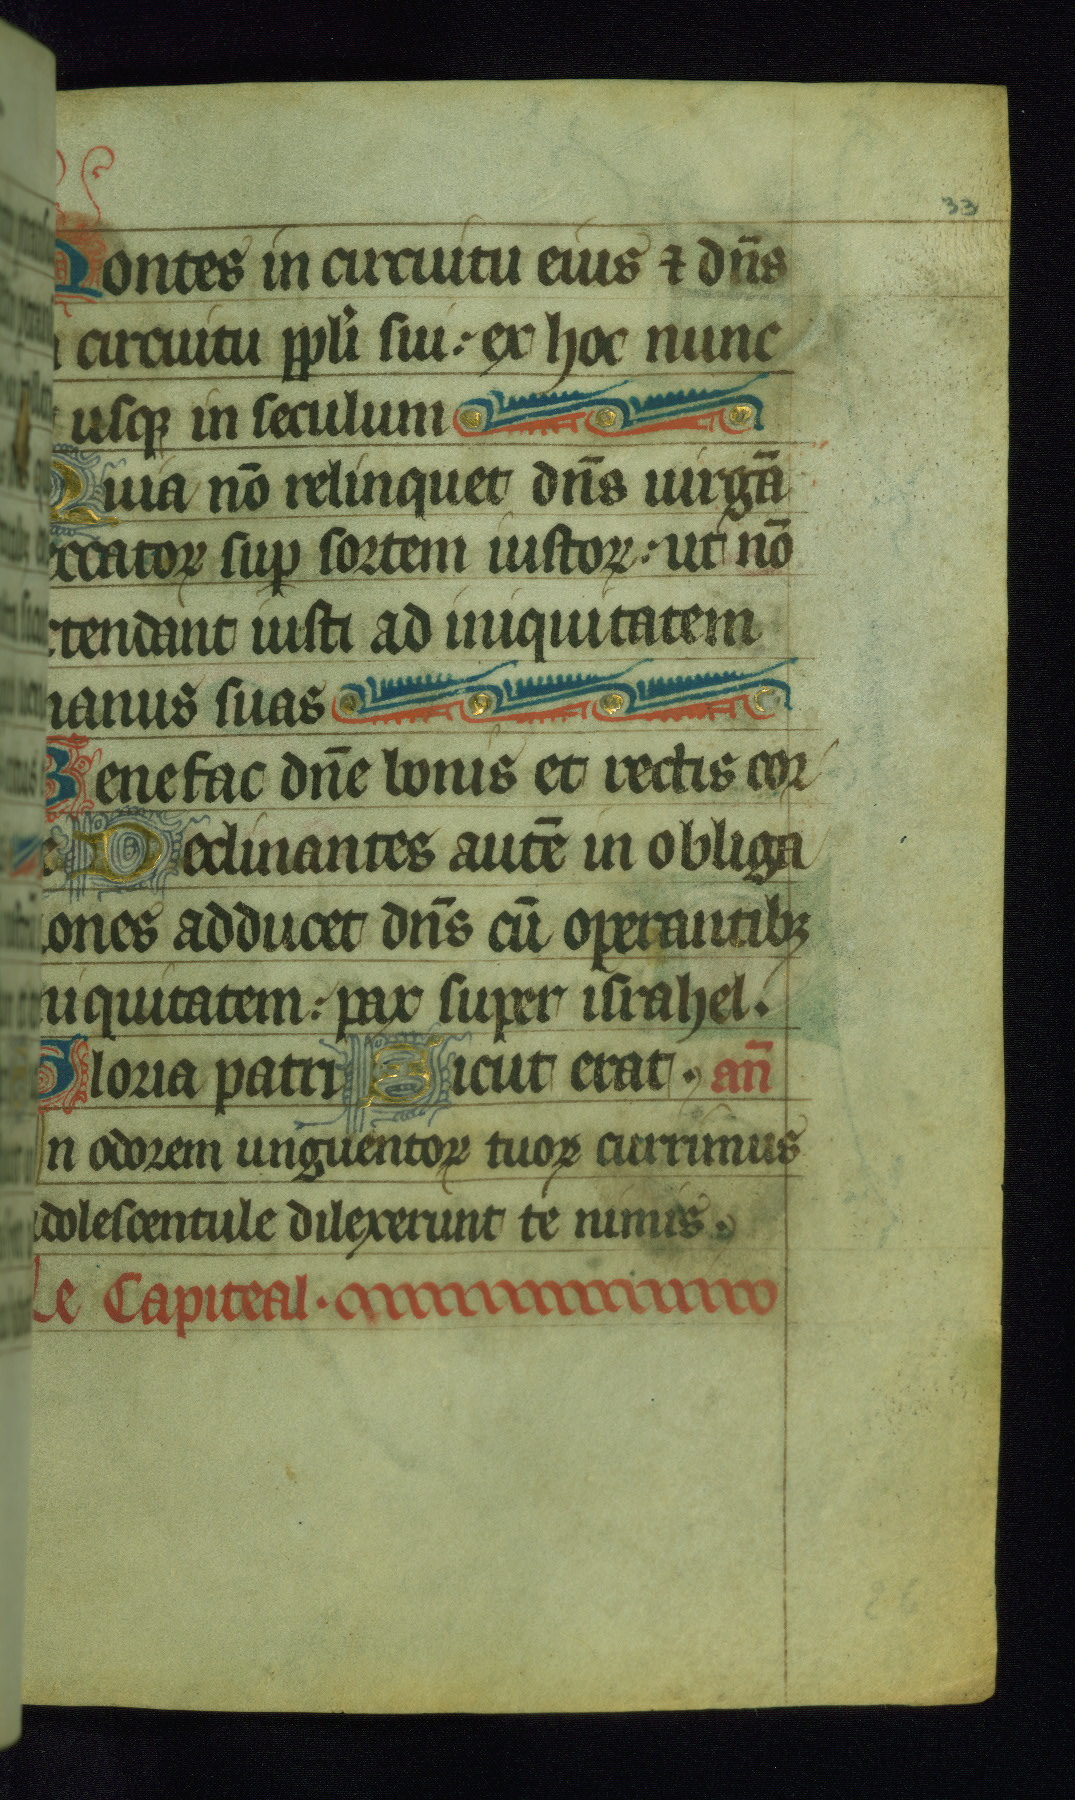 33
Montes in circuitu eius ⁊ dn̄s
n circuitu ppl̓i sui : ex hoc nunc
usqꝫ in seculum
Quia nō relinquet dn̄s uirgā
eccatorꝝ sup sortem iustorꝝ : ut nō
xtendant iusti ad iniquitatem
manus suas
Benefac dn̄e bonis et rectis cor
e Declinantes autē in obliga
iones adducet dn̄s cū operantibꝫ
niquitatem : pax super israhel .
Gloria patri Sicut erat . an̄
In odorem unguentorꝝ tuorꝝ currimus
adolescentule dilexerunt te nimis .
Le Capiteal .